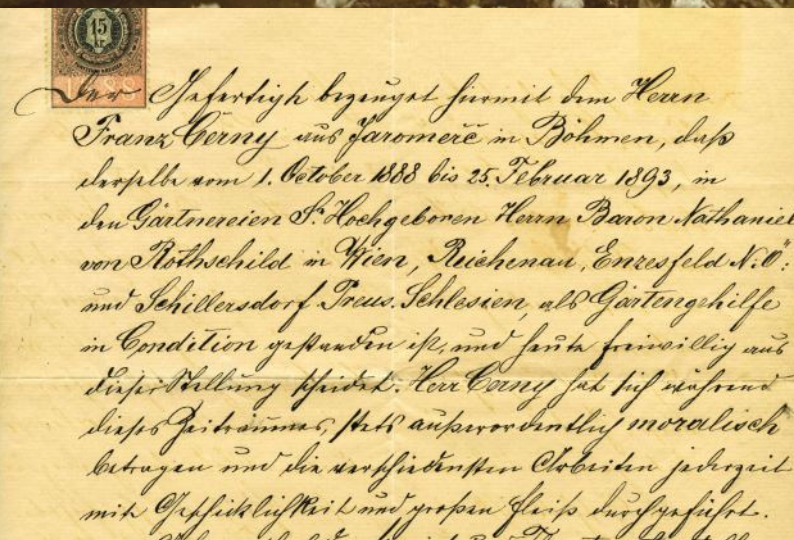 15
kr
1888
Der Gefertigte bezeuget hiermit dem Herrn
Franz Černy aus Jaromerč in Böhmen, daß
derselbe vom 1. October 1888 bis 25. Februar 1893, in
den Gärtnereien Sr. Hochgeboren Herrn Baron Nathaniel
von Rothschild in Wien, Reichenau, Enzesfeld N.Ö.
und Schillersdorf Preus. Schlesien, als Gartengehilfe
in Condition gestanden ist, und heute freiwillig aus
dieser Stellung scheidet. Herr Černy hat sich während
dieses Zeitraumes, stets außerordentlich moralisch
betragen und die verschiedensten Arbeiten jederzeit
mit Geschicklichkeit und großen Fleiß durchgeführt.